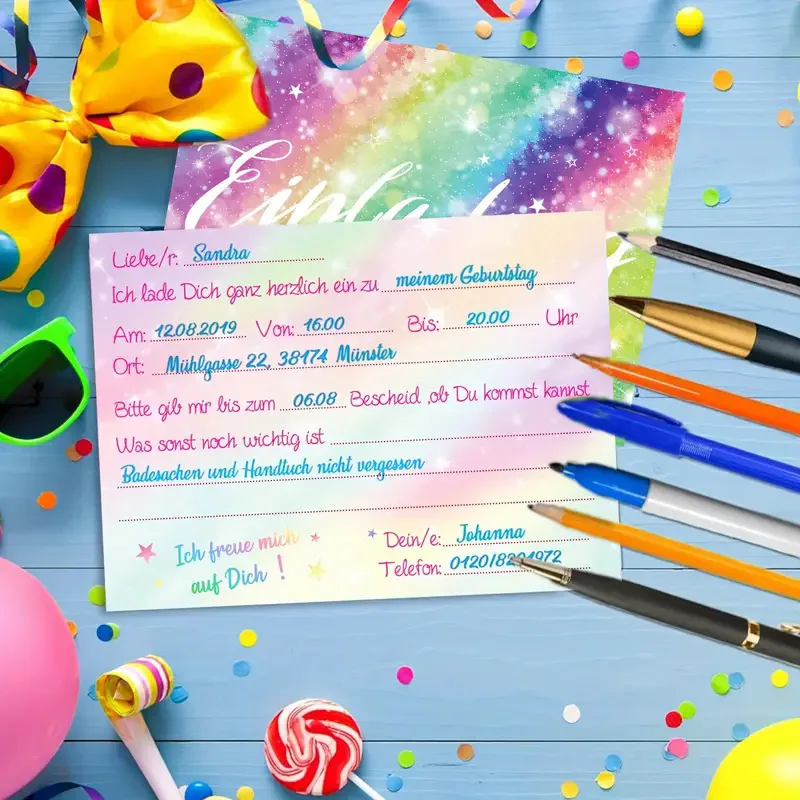 Einla
Liebe/r: Sandra
Ich lade Dich ganz herzlich ein zu meinem Geburtstag
Am: 12.08.2019 Von: 16.00 Bis: 20.00 Uhr
Ort: Mühlgasse 22, 38174 Münster
Bitte gib mir bis zum 06.08 Bescheid ,ob Du kommst kannst
Was sonst noch wichtig ist
Badesachen und Handtuch nicht vergessen
Ich freue mich
auf Dich !
Dein/e: Johanna
Telefon: